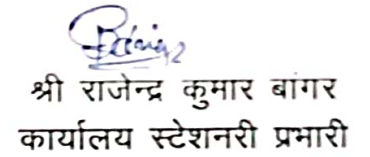 श्री राजेन्द्र कुमार बांगर
कार्यालय स्टेशनरी प्रभारी